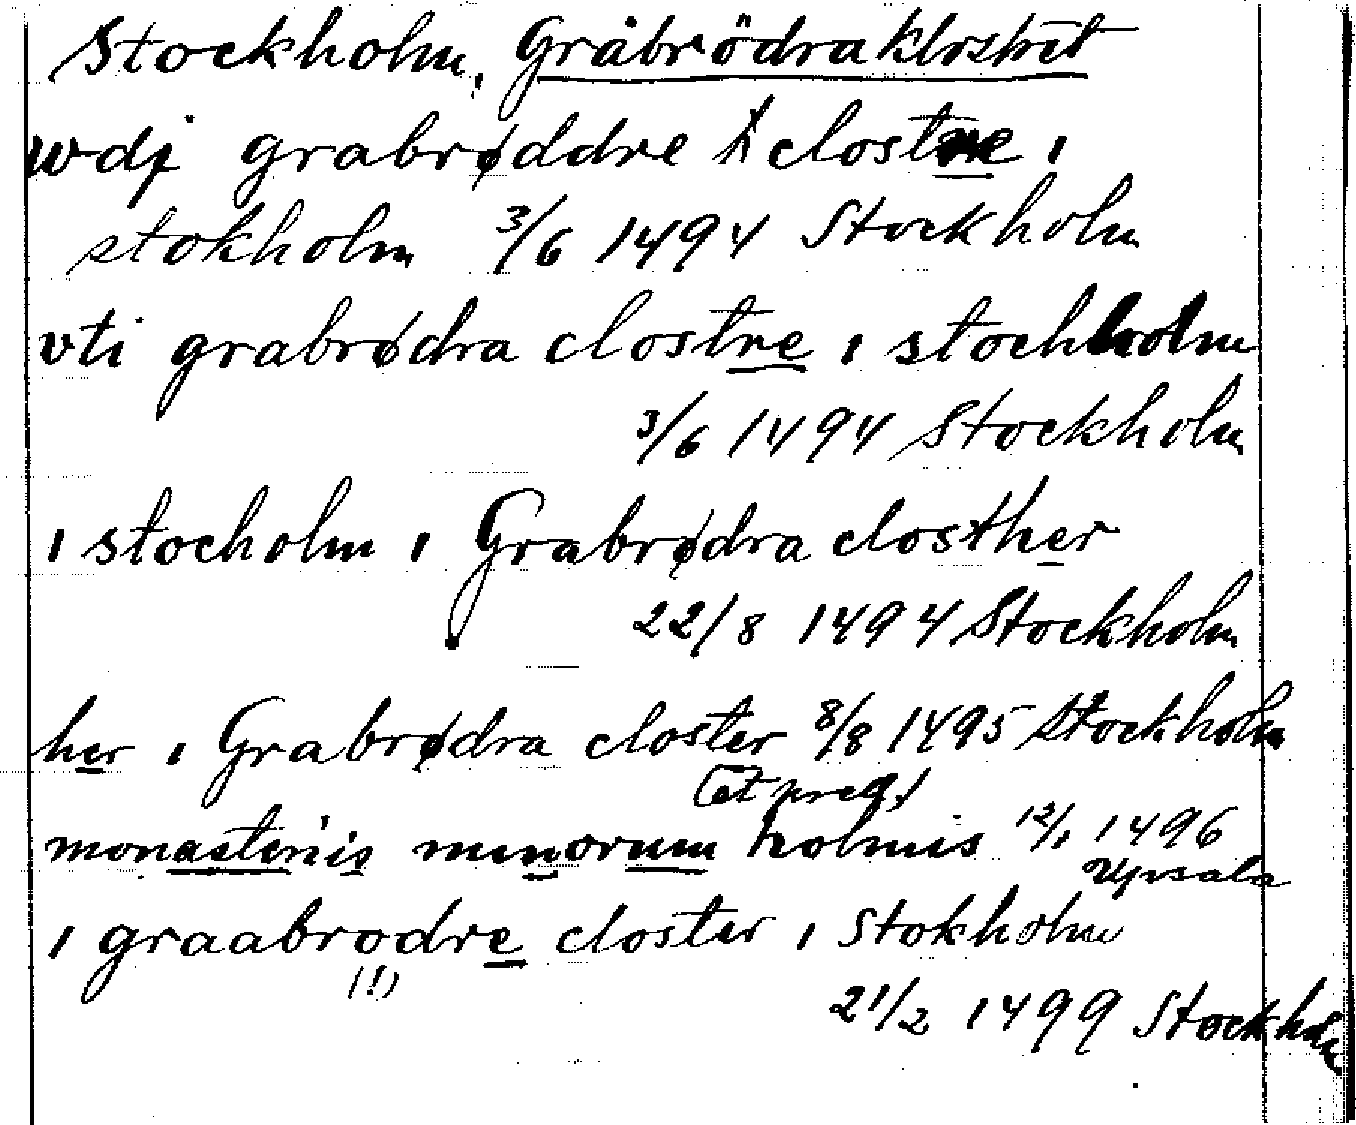 Stockholm, Gråbrödraklostret
wdj grabrøddre clostre i
stokholm 3/6 1494 Stockholm
vti grabrødra clostre i stockholm
3/6 1494 Stockholm
i stocholm i Grabrødra closther
22/8 1494 Stockholm
her i Grabrødra closter 8/8 1495 Stockholm
(et preg.)
monasteriis minorum holmis 12/1 1496
Upsala
i graabrodre closter i Stokholm
(!)
21/2 1499 Stockholm